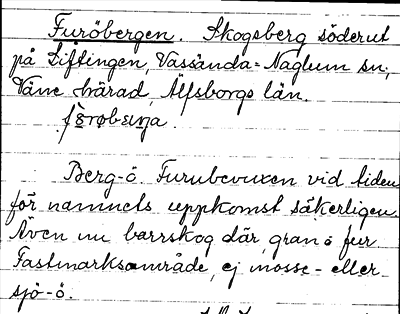 Furöbergen. Skogsberg söderut
på Liftingen, Vassända=Naglum sn,
Väne härad, Älfsborgs län.
Berg-ö. Furubevuxen vid tiden
för namnets uppkomst säkerligen.
Även nu barrskog där, gran o fur.
Fastmarksområde, ej mosse- eller
sjö-ö.